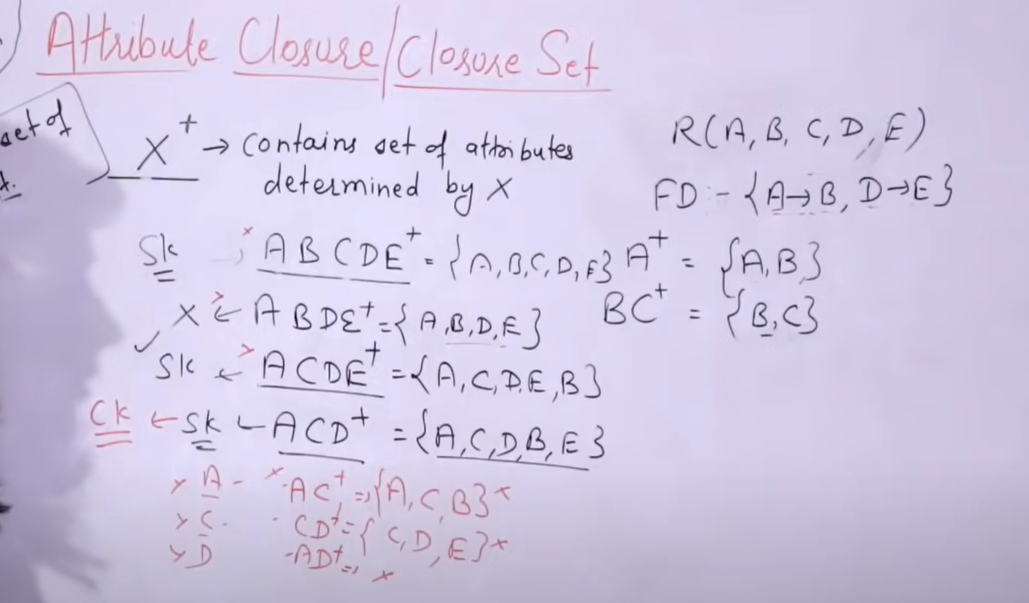 Attribute Closure/Closure Set
set of
X⁺ → Contains set of attributes
determined by X
R(A, B, C, D, E)
FD :- {A→B, D→E}
Sk ABCDE⁺ = {A,B,C,D,E} A⁺ = {A,B}
X ← ABDE⁺ = {A,B,D,E} BC⁺ = {B,C}
✓ Sk ← ACDE⁺ = {A,C,D,E,B}
Ck ← Sk ← ACD⁺ = {A,C,D,B,E}
A - × AC⁺ => {A,C,B} ×
C. - CD⁺ = {C,D,E} ×
D - AD⁺ => ×